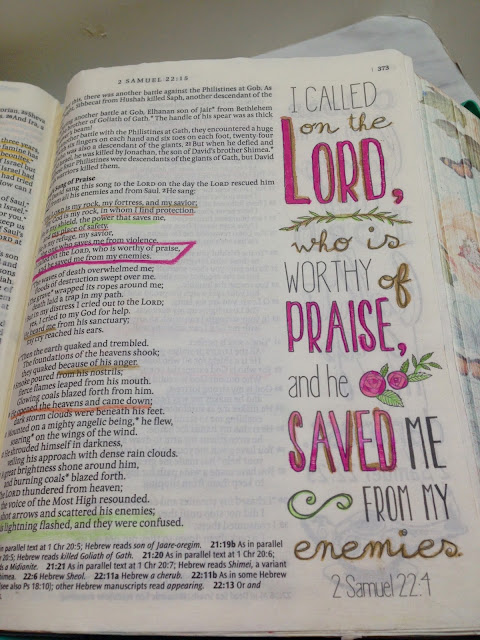 2 SAMUEL 22:15
373
this, there was another battle against the Philistines at Gob. As
Sibbecai from Hushah killed Saph, another descendant of the
another battle at Gob, Elhanan son of Jair* from Bethlehem
of Goliath of Gath.* The handle of his spear was as thick
beam!
battle with the Philistines at Gath, they encountered a huge
six fingers on each hand and six toes on each foot, twenty-four
was also a descendant of the giants. 21 But when he defied and
Israel, he was killed by Jonathan, the son of David's brother Shimea.*
four Philistines were descendants of the giants of Gath, but David
warriors killed them.
Song of Praise
sang this song to the LORD on the day the LORD rescued him
all his enemies and from Saul. 2 He sang:
LORD is my rock, my fortress, and my savior;
God is my rock, in whom I find protection.
shield, the power that saves me,
my place of safety.
my refuge, my savior,
who saves me from violence.
on the LORD, who is worthy of praise,
he saved me from my enemies.
waves of death overwhelmed me;
floods of destruction swept over me.
grave* wrapped its ropes around me;
death laid a trap in my path.
in my distress I cried out to the LORD;
yes, I cried to my God for help.
heard me from his sanctuary;
my cry reached his ears.
Then the earth quaked and trembled.
The foundations of the heavens shook;
they quaked because of his anger.
Smoke poured from his nostrils;
fierce flames leaped from his mouth.
Glowing coals blazed forth from him.
He opened the heavens and came down;
dark storm clouds were beneath his feet.
Mounted on a mighty angelic being,* he flew,
soaring* on the wings of the wind.
He shrouded himself in darkness,
veiling his approach with dense rain clouds.
great brightness shone around him,
and burning coals* blazed forth.
The LORD thundered from heaven;
the voice of the Most High resounded.
shot arrows and scattered his enemies;
lightning flashed, and they were confused.
in parallel text at 1 Chr 20:5; Hebrew reads son of Jaare-oregim. 21:19b As in parallel
20:5; Hebrew reads killed Goliath of Gath. 21:20 As in parallel text at 1 Chr 20:6;
a Midianite. 21:21 As in parallel text at 1 Chr 20:7; Hebrew reads Shimei, a variant
Shimea. 22:6 Hebrew Sheol. 22:11a Hebrew a cherub. 22:11b As in some Hebrew
(see also Ps 18:10); other Hebrew manuscripts read appearing. 22:13 Or and
I CALLED
on the
LORD,
who is
WORTHY of
PRAISE,
and he
SAVED ME
FROM MY
enemies.
2 Samuel 22:4